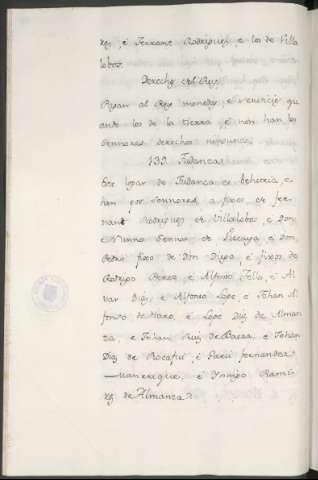 rez, é Ferrant Rodriguez, e los de Villa
lobos.
Derechos del Rey.
Pagan al Rey monedas, é servicios qu
ando los de la tierra, e non han los
Sennores derechos ningunos.
139. Tudanca.
Este logar de Tudanca es behetria, e
han por Sennores a fijos de Fer
nant Rodriguez de Villalobos, e Don
Nunno Sennor de Lizcaya, e Don
Pedro fixo de Don Diego, é fijos de
Rodrigo Perez, e Alfonso Tello, e Al
var Diaz, e Alfonso Lope, e Johan Al
fonso de Haro, e Lope Diaz de Alman
za, e Johan Ruiz de Baeza, e Johan
Diaz de Rocafui, é Garci Fernandez
Manrrique, é Ynnigo Rami
rez de Almanza.